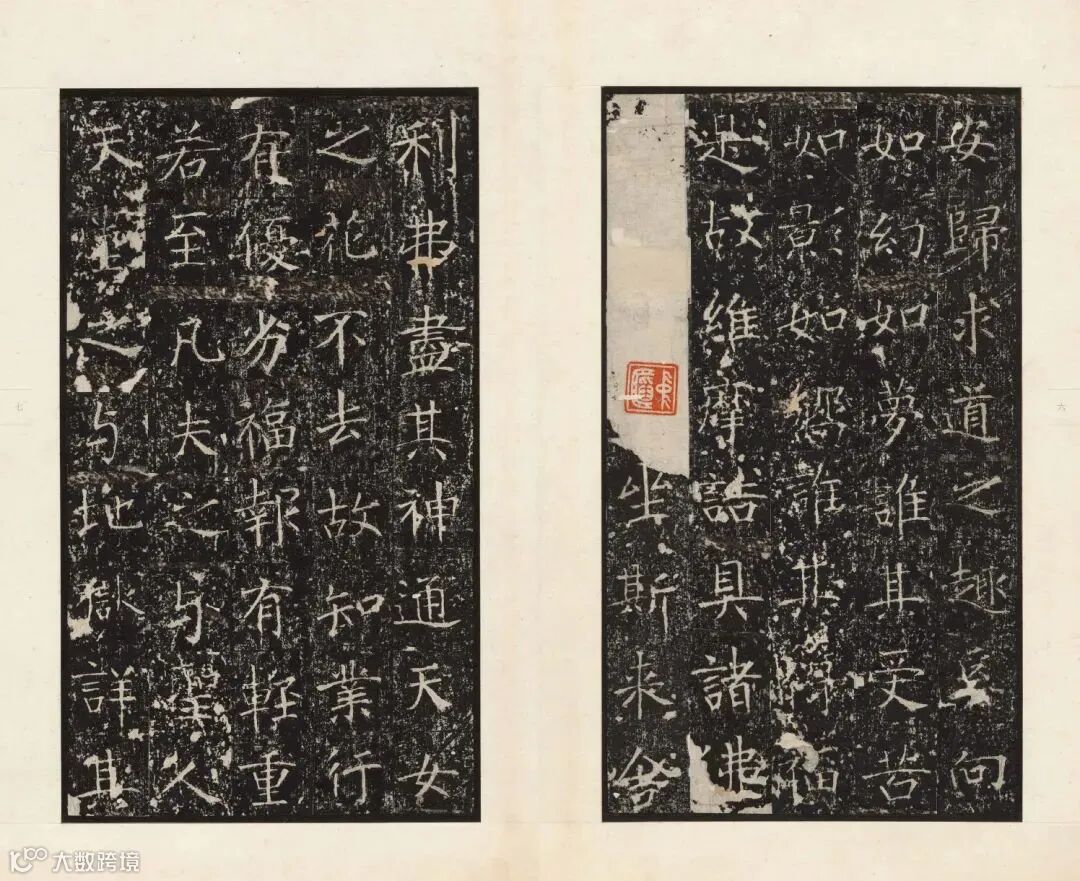 安歸求道之趣奚向
如幻如夢誰其受苦
如影如響誰其得福
是故維摩詰具諸佛
坐斯來舍
利弗盡其神通天女
之花不去故知業行
有優劣福報有輕重
若至凡夫之与聖人
天堂之与地獄詳其
六
七
大数跨境